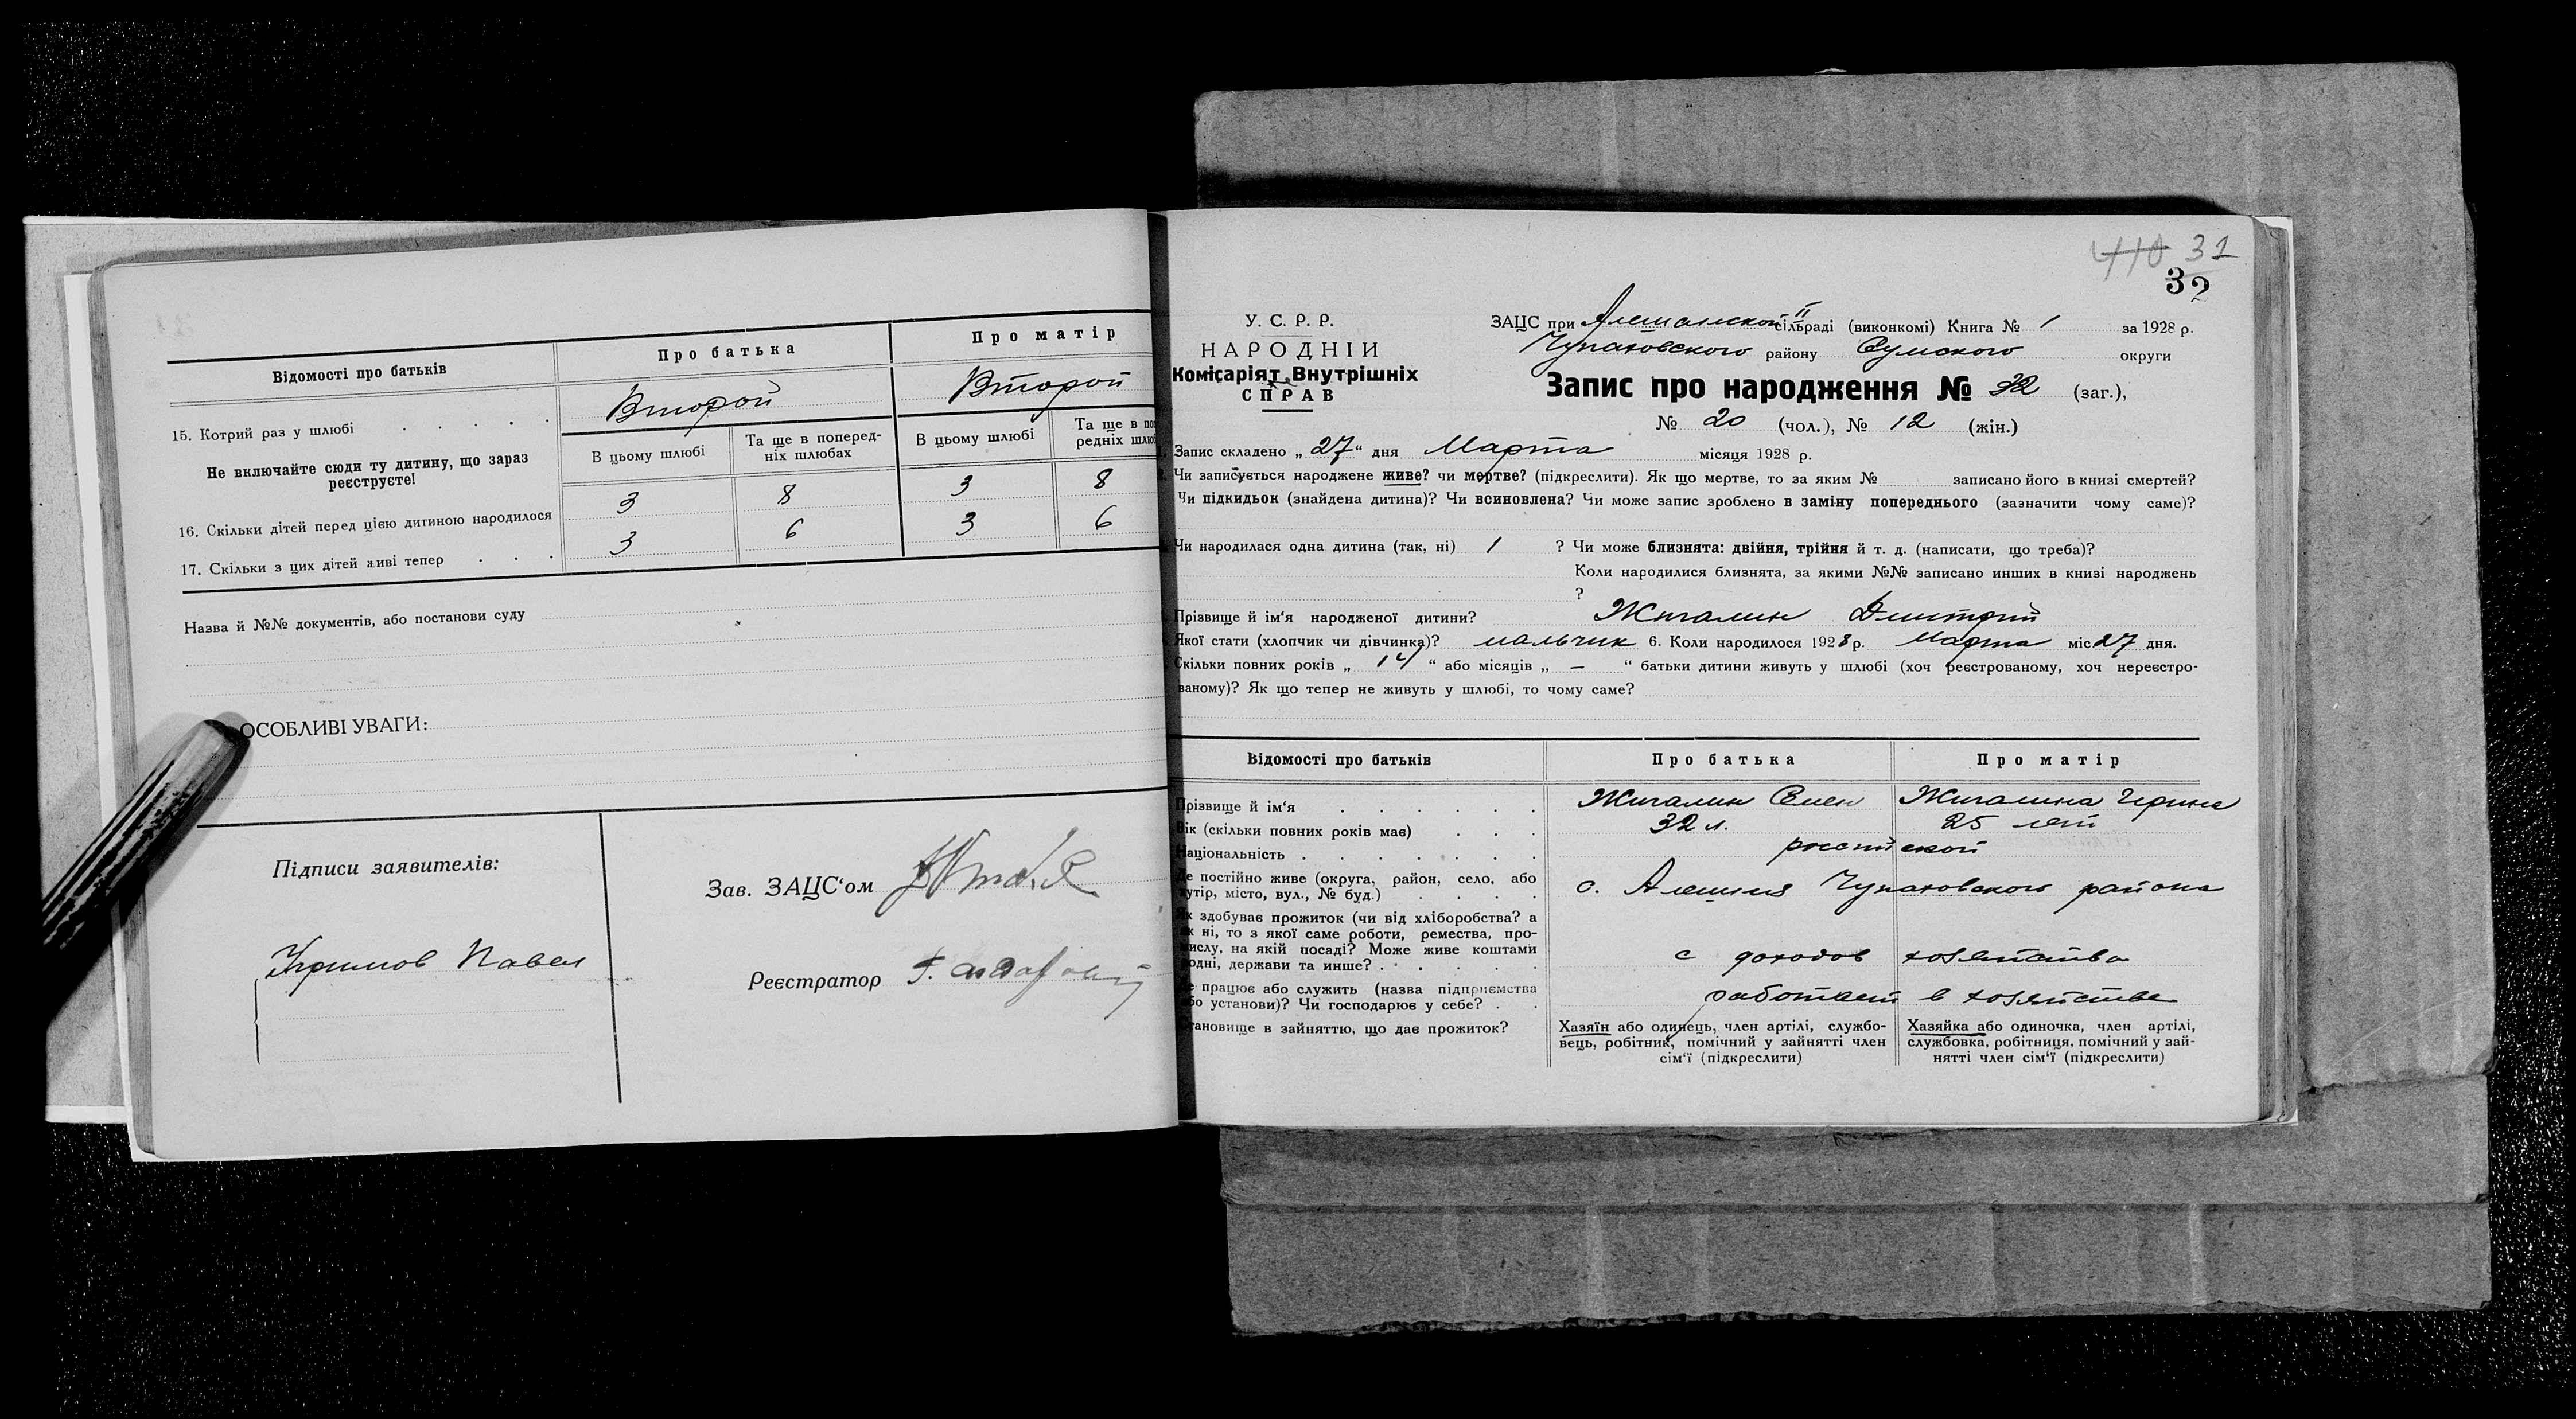 Відомості про батьків
Про батька
Про матір
15. Котрий раз у шлюбі
Второй
Второй
Не включайте сюди ту дитину, що зараз
реєструєте!
В цьому шлюбі
Та ще в поперед-
ніх шлюбах
В цьому шлюбі
Та ще в по
редніх шлю
16. Скільки дітей перед цією дитиною народилося
3 8 3 8
17. Скільки з цих дітей живі тепер
3 6 3 6
Назва й №№ документів, або постанови суду
ОСОБЛИВІ УВАГИ:
Підписи заявителів:
Зав. ЗАЦС'ом
Уфимов Павел
Реєстратор
410 31
32
У. С. Р. Р.
НАРОДНІЙ
Комісаріят Внутрішніх
СПРАВ
ЗАЦС при Алешанской II сільраді (виконкомі) Книга № 1 за 1928 р.
Чупаховского району Сумского округи
Запис про народження № 32 (заг.),
№ 20 (чол.), № 12 (жін.)
Запис складено „27“ дня Марта місяця 1928 р.
Чи записується народжене живе? чи мертве? (підкреслити). Як що мертве, то за яким № записано його в книзі смертей?
Чи підкидьок (знайдена дитина)? Чи всиновлена? Чи може запис зроблено в заміну попереднього (зазначити чому саме)?
Чи народилася одна дитина (так, ні) 1 ? Чи може близнята: двійня, трійня й т. д. (написати, що треба)?
Коли народилися близнята, за якими №№ записано инших в книзі народжень
?
Прізвище й ім'я народженої дитини? Жигалин Дмитрий
Якої стати (хлопчик чи дівчинка)? мальчик 6. Коли народилося 1928 р. Марта міс 27 дня.
Скільки повних років „14“ або місяців „—“ батьки дитини живуть у шлюбі (хоч реєстрованому, хоч нереєстро-
ваному)? Як що тепер не живуть у шлюбі, то чому саме?
Відомості про батьків
Про батька
Про матір
Прізвище й ім'я
Жигалин Семен
Жигалина Ирина
Вік (скільки повних років має)
32 л.
25 лет
Національність
российской
Де постійно живе (округа, район, село, або
хутір, місто, вул., № буд.)
с. Алешня Чупаховского района
Як здобуває прожиток (чи від хліборобства? а
як ні, то з якої саме роботи, ремества, про-
мислу, на якій посаді? Може живе коштами
родні, держави та инше?
с доходов хозяйства
Де працює або служить (назва підприємства
або установи)? Чи господарює у себе?
работает в хозяйстве
Становище в зайняттю, що дає прожиток?
Хазяїн або одинець, член артілі, службо-
вець, робітник, помічний у зайнятті член
сім'ї (підкреслити)
Хазяйка або одиночка, член артілі,
службовка, робітниця, помічний у зай-
нятті член сім'ї (підкреслити)